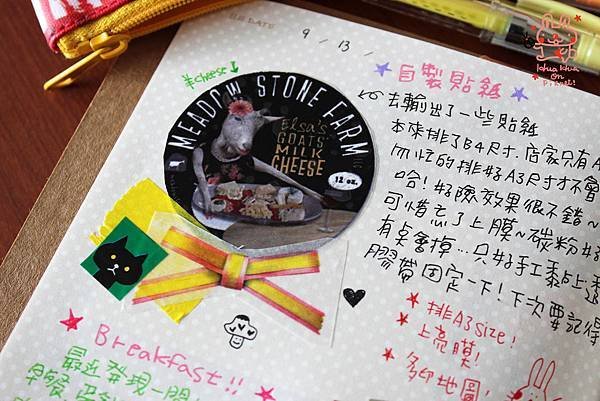 DATE
9 / 13 /
khua khua
on
planet!
羊cheese
MEADOW STONE FARM
LLC
Elsa's
GOATS
MILK
CHEESE
12 oz.
自製貼紙
去輸出了一些貼紙
本來排了B4尺寸,店家只有A
而忙的排好A3尺寸才不會
哈!好險效果很不錯~
可惜忘了上膜~碳粉
有點會掉…只好手工黏上透
膠帶固定一下!下次要記得
排A3size!
上亮膜!
多印地圖!
Breakfast!!
最近發現一間